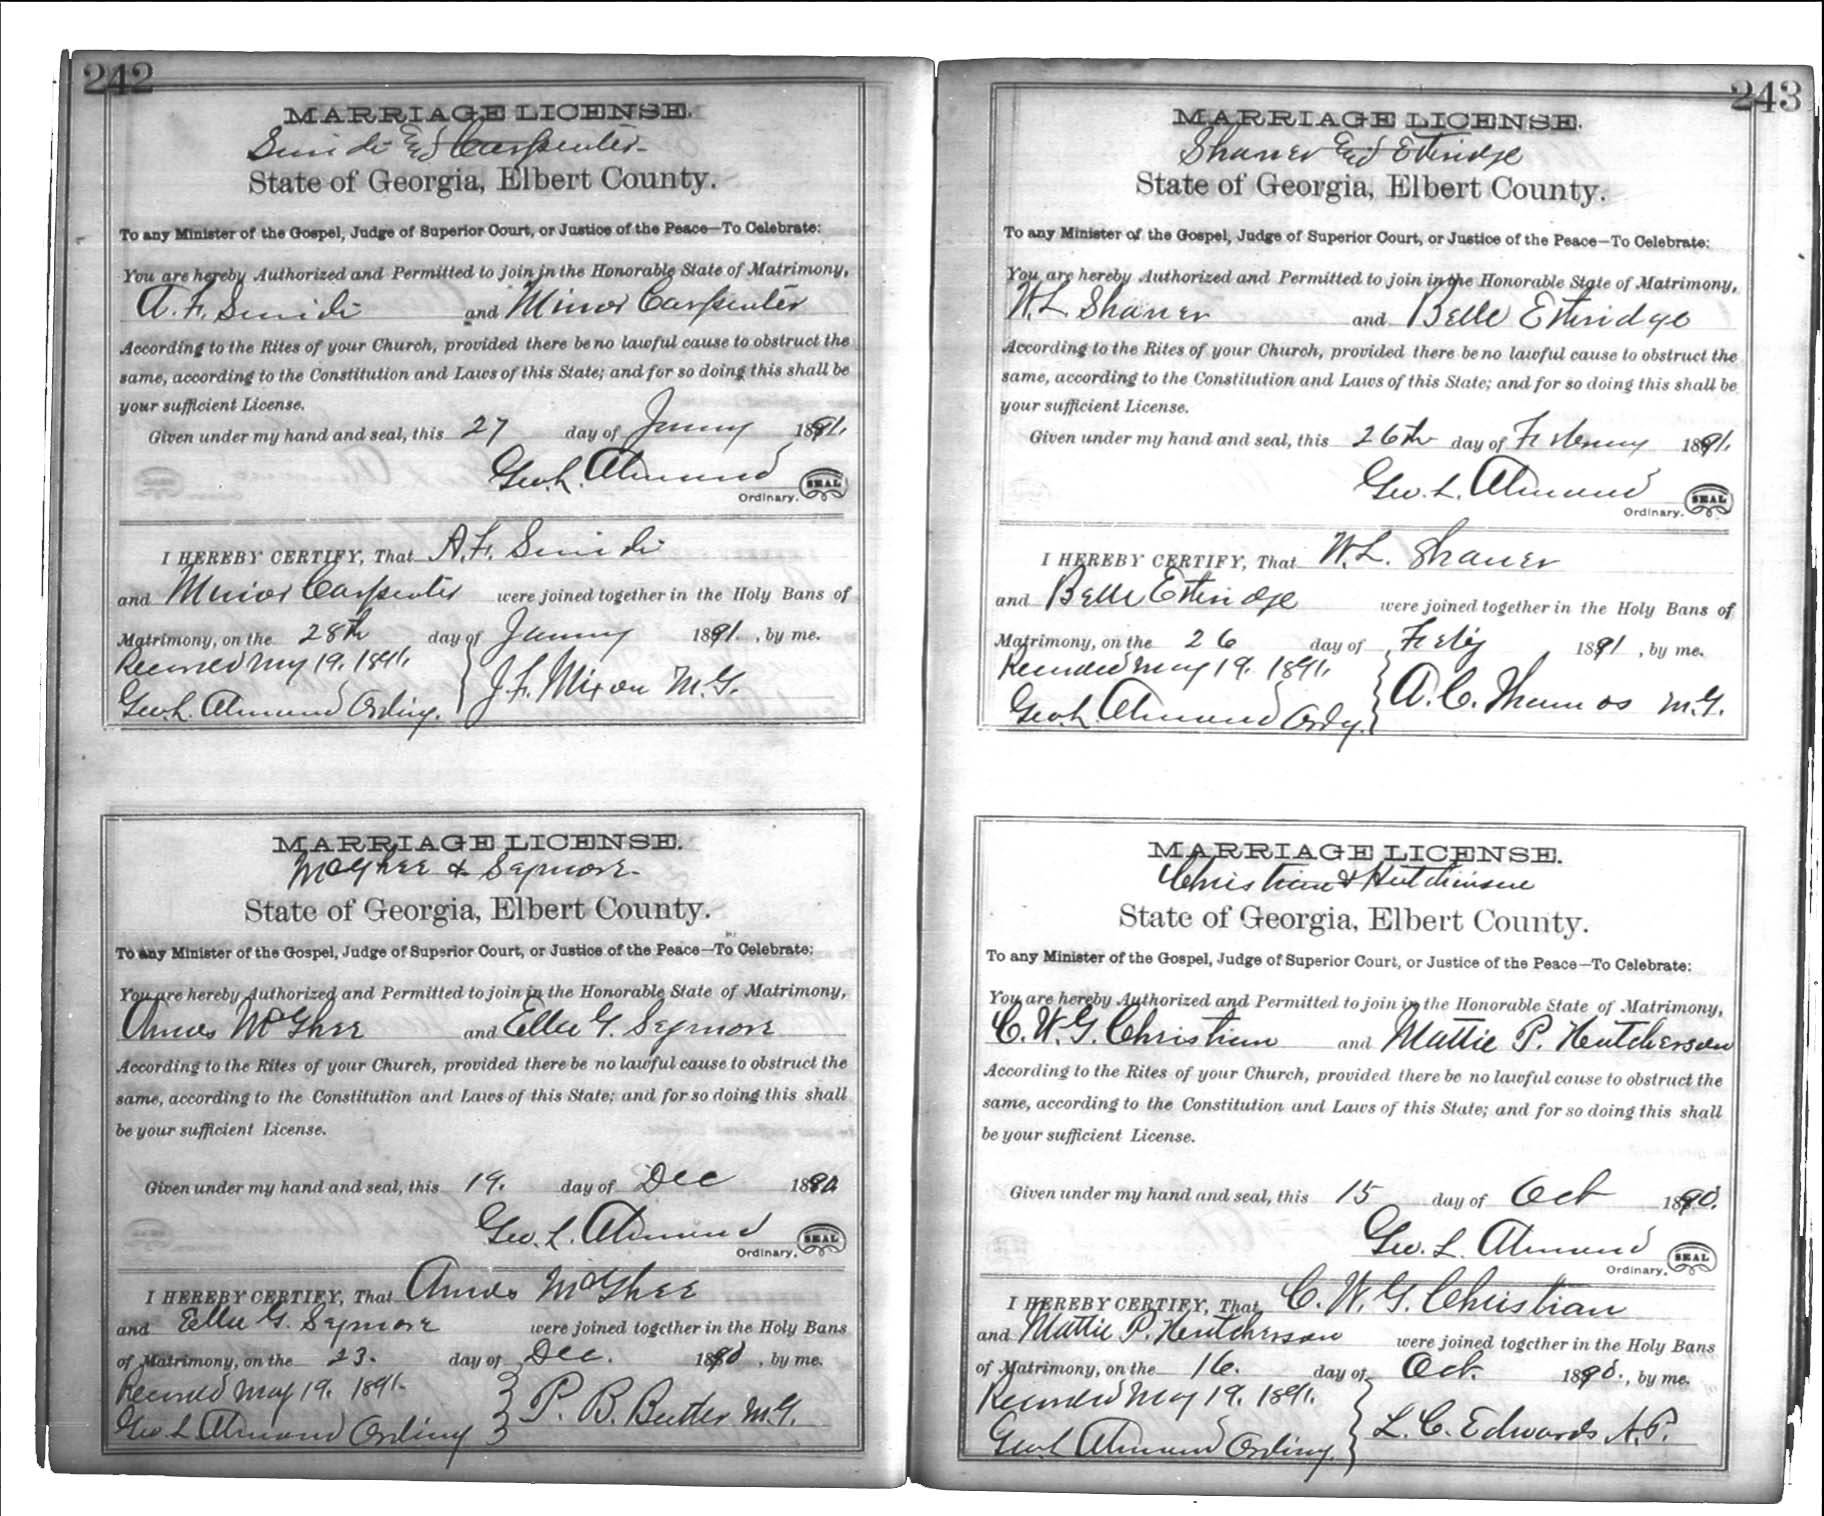 242
MARRIAGE LICENSE.
Carpenter
State of Georgia, Elbert County.
To any Minister of the Gospel, Judge of Superior Court, or Justice of the Peace—To Celebrate:
You are hereby Authorized and Permitted to join in the Honorable State of Matrimony,
A. F. and Minor Carpenter
According to the Rites of your Church, provided there be no lawful cause to obstruct the
same, according to the Constitution and Laws of this State; and for so doing this shall be
your sufficient License.
Given under my hand and seal, this 27 day of 1891.
Geo. L. Almond SEAL
Ordinary.
I HEREBY CERTIFY, That A. F.
and Minor Carpenter were joined together in the Holy Bans of
Matrimony, on the 28th day of 1891, by me.
Recorded May 19. 1891.
Geo. L. Almond J. F. Mixon M.G.
MARRIAGE LICENSE.
McGhee & Seymore
State of Georgia, Elbert County.
To any Minister of the Gospel, Judge of Superior Court, or Justice of the Peace—To Celebrate:
You are hereby Authorized and Permitted to join in the Honorable State of Matrimony,
Amos McGhee and Ella G. Seymore
According to the Rites of your Church, provided there be no lawful cause to obstruct the
same, according to the Constitution and Laws of this State; and for so doing this shall
be your sufficient License.
Given under my hand and seal, this 19. day of Dec 1890
Geo. L. Almond SEAL
Ordinary.
I HEREBY CERTIFY, That Amos McGhee
and Ella G. Seymore were joined together in the Holy Bans
of Matrimony, on the 23. day of Dec. 1890, by me.
Recorded May 19. 1891.
Geo L Almond P. B. Butler M.G.
243
MARRIAGE LICENSE.
Etheridge
State of Georgia, Elbert County.
To any Minister of the Gospel, Judge of Superior Court, or Justice of the Peace—To Celebrate:
You are hereby Authorized and Permitted to join in the Honorable State of Matrimony,
W. L. and Belle Etheridge
According to the Rites of your Church, provided there be no lawful cause to obstruct the
same, according to the Constitution and Laws of this State; and for so doing this shall be
your sufficient License.
Given under my hand and seal, this 26th day of 1891.
Geo. L. Almond SEAL
Ordinary.
I HEREBY CERTIFY, That W. L.
and Belle Etheridge were joined together in the Holy Bans of
Matrimony, on the 26 day of 1891, by me.
Recorded May 19. 1891.
Geo. L. Almond Ordy. A. C. Thomas M.G.
MARRIAGE LICENSE.
Christian & Hutchinson
State of Georgia, Elbert County.
To any Minister of the Gospel, Judge of Superior Court, or Justice of the Peace—To Celebrate:
You are hereby Authorized and Permitted to join in the Honorable State of Matrimony,
C. W. G. Christian and Mattie P. Hutcherson
According to the Rites of your Church, provided there be no lawful cause to obstruct the
same, according to the Constitution and Laws of this State; and for so doing this shall
be your sufficient License.
Given under my hand and seal, this 15 day of Oct 1890.
Geo. L. Almond SEAL
Ordinary.
I HEREBY CERTIFY, That C. W. G. Christian
and Mattie P. Hutcherson were joined together in the Holy Bans
of Matrimony, on the 16. day of Oct. 1890., by me.
Recorded May 19. 1891.
Geo L Almond L. C. Edwards